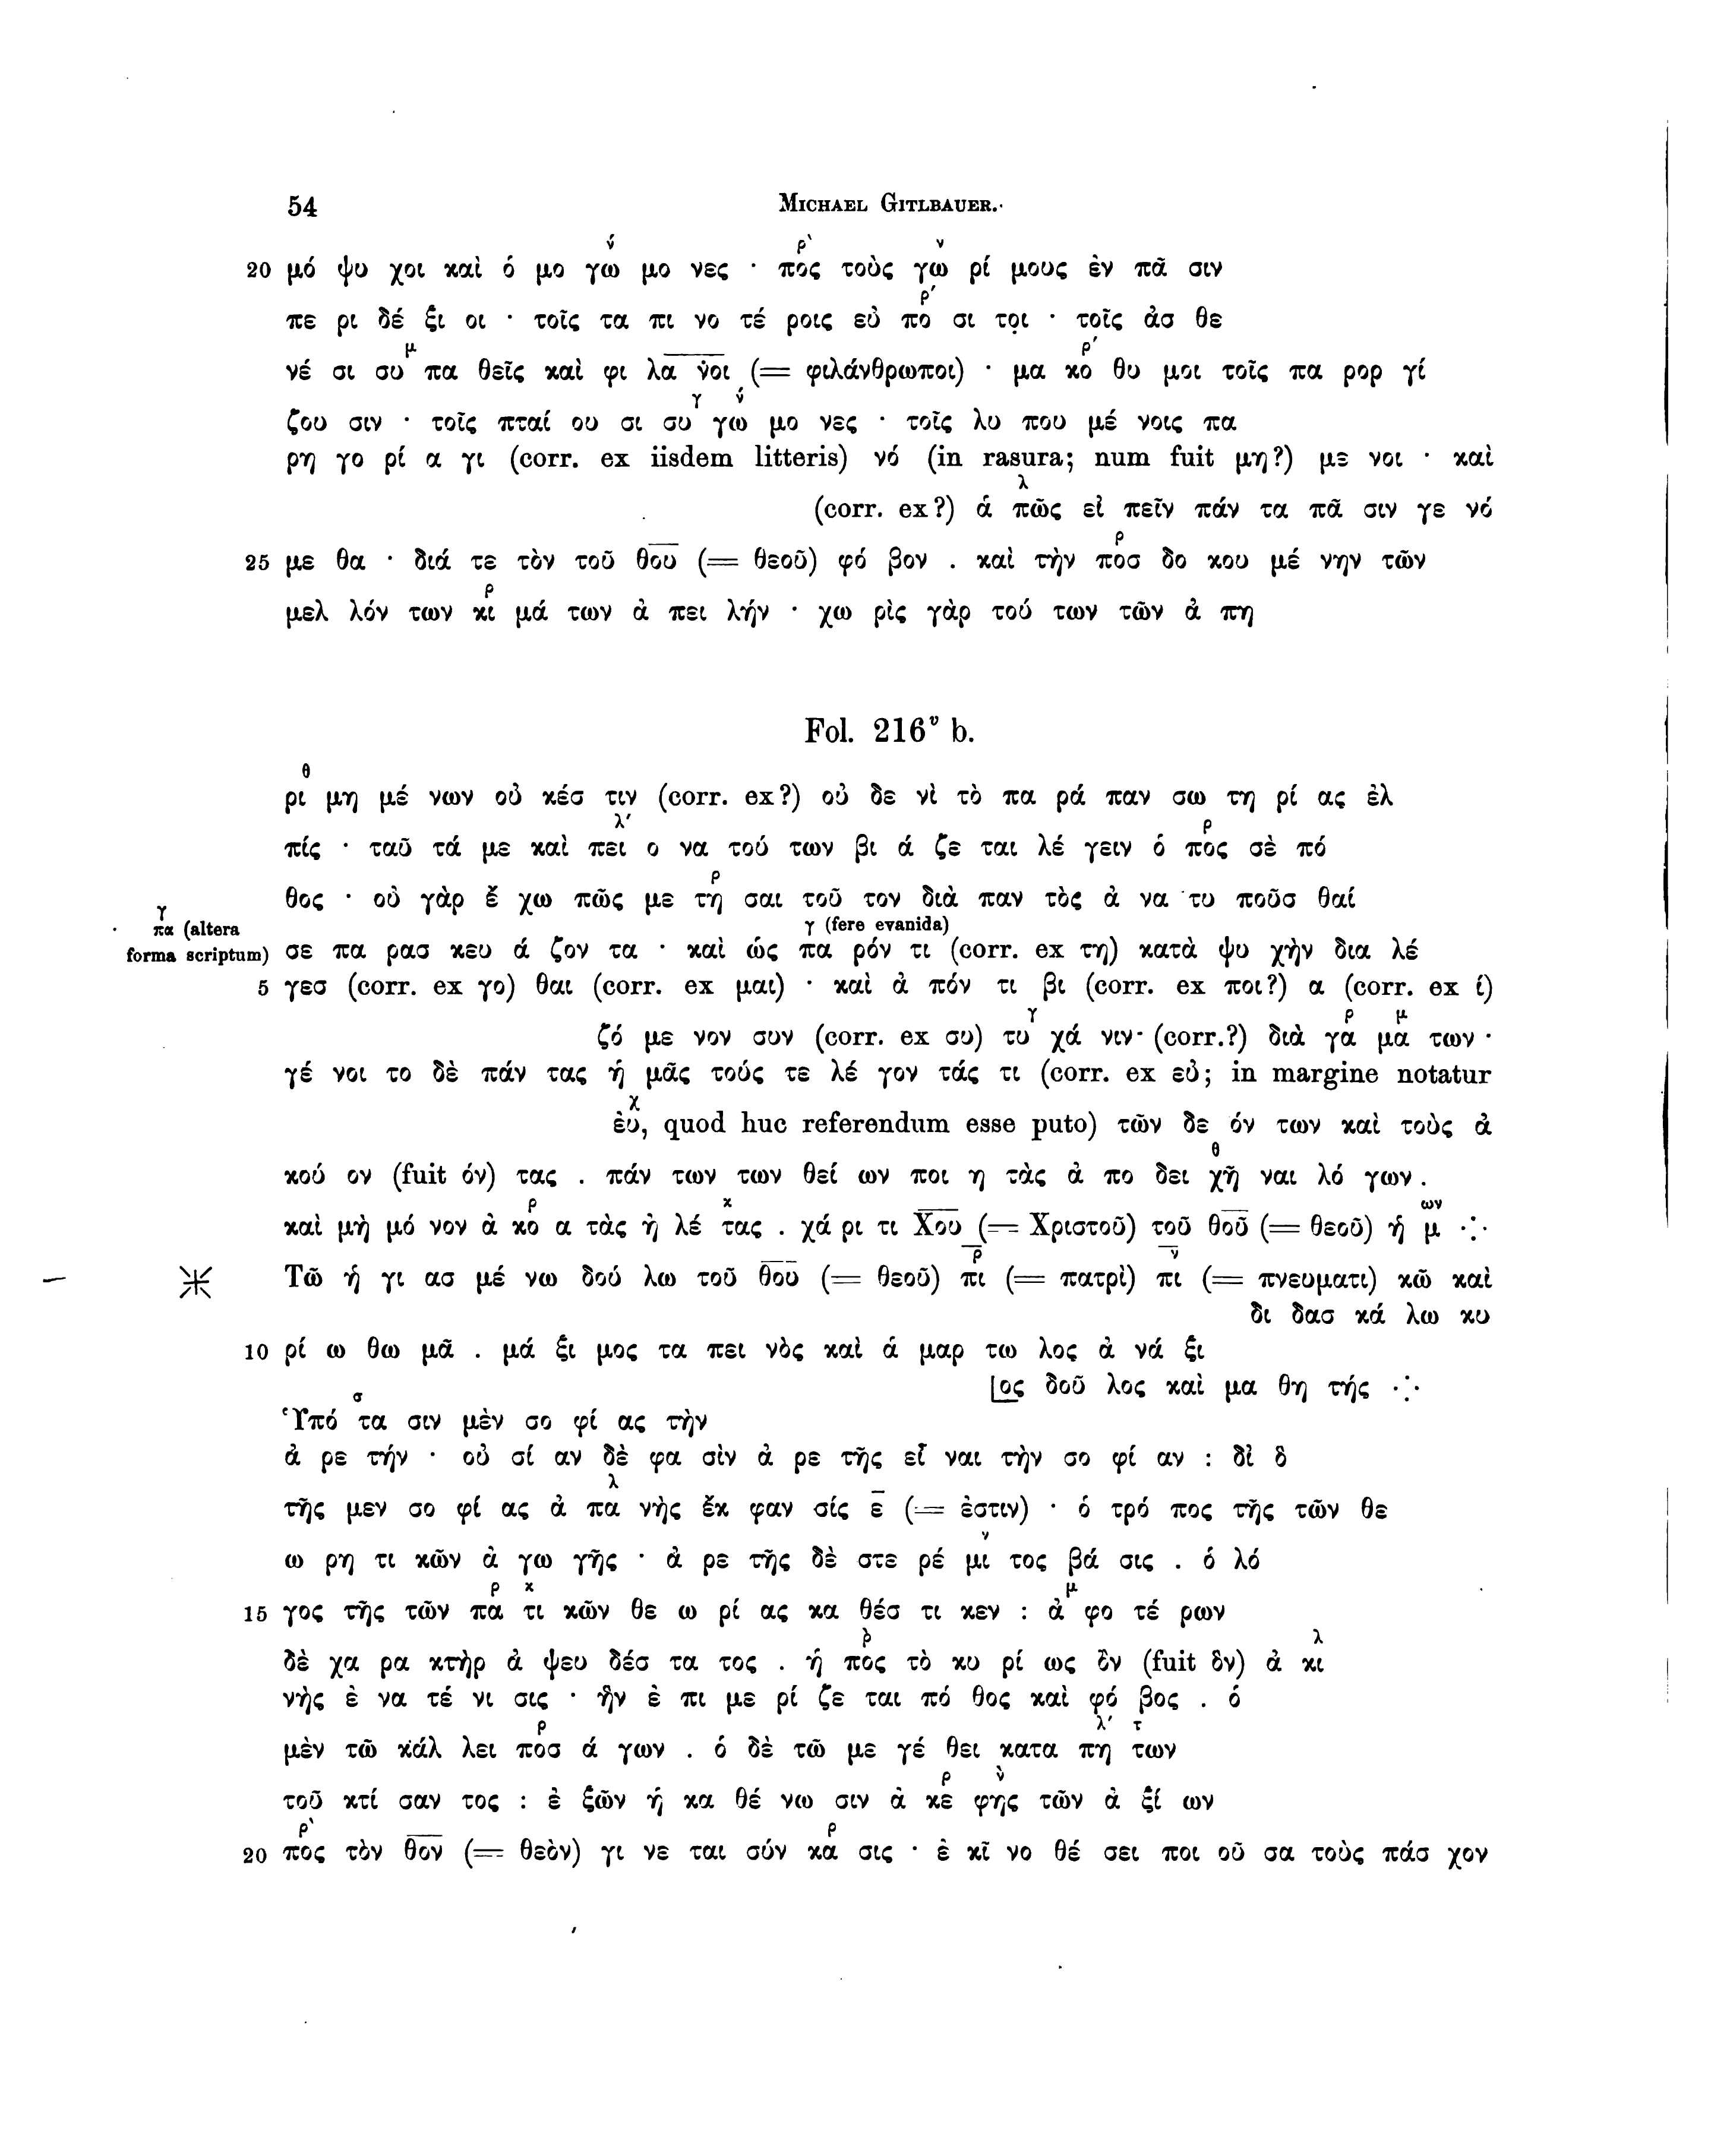 54 MICHAEL GITLBAUER.
ν́ ρ̀ ν
20 μό ψυ χοι καὶ ὁ μο γω μο νες · πος τοὺς γω ρί μους ἐν πᾶ σιν
ρ́
πε ρι δέ ξι οι · τοῖς τα πι νο τέ ροις εὐ πο σι τοι · τοῖς ἀσ θε
μ ρ́
νέ σι συ πα θεῖς καὶ φι λα νοι (= φιλάνθρωποι) · μα κο θυ μοι τοῖς πα ρορ γί
γ ν́
ζου σιν · τοῖς πταί ου σι συ γω μο νες · τοῖς λυ που μέ νοις πα
ρη γο ρί α γι (corr. ex iisdem litteris) νό (in rasura; num fuit μη?) με νοι · καὶ
λ
(corr. ex?) ἁ πῶς εἰ πεῖν πάν τα πᾶ σιν γε νό
ρ
25 με θα · διά τε τὸν τοῦ θου (= θεοῦ) φό βον . καὶ τὴν ποσ δο κου μέ νην τῶν
ρ
μελ λόν των κι μά των ἀ πει λήν · χω ρὶς γὰρ τού των τῶν ἀ πη
Fol. 216ᵛ b.
θ
ρι μη μέ νων οὐ κέσ τιν (corr. ex?) οὐ δε νὶ τὸ πα ρά παν σω τη ρί ας ἐλ
λ́ ρ
πίς · ταῦ τά με καὶ πει ο να τού των βι ά ζε ται λέ γειν ὁ πος σὲ πό
ρ
θος · οὐ γὰρ ἔ χω πῶς με τη σαι τοῦ τον διὰ παν τὸς ἀ να τυ ποῦσ θαί
γ
πα (altera
forma scriptum)
γ (fere evanida)
σε πα ρασ κευ ά ζον τα · καὶ ὡς πα ρόν τι (corr. ex τη) κατὰ ψυ χὴν δια λέ
5 γεσ (corr. ex γο) θαι (corr. ex μαι) · καὶ ἀ πόν τι βι (corr. ex ποι?) α (corr. ex ί)
γ ρ μ
ζό με νον συν (corr. ex συ) τυ χά νιν· (corr.?) διὰ γα μα των ·
γέ νοι το δὲ πάν τας ἡ μᾶς τούς τε λέ γον τάς τι (corr. ex εὐ; in margine notatur
χ
ἐυ, quod huc referendum esse puto) τῶν δε όν των καὶ τοὺς ἀ
θ
κού ον (fuit όν) τας . πάν των των θεί ων ποι η τὰς ἀ πο δει χῆ ναι λό γων .
ρ κ ων
καὶ μὴ μό νον ἀ κο α τὰς ἢ λέ τας . χά ρι τι Χου (= Χριστοῦ) τοῦ θοῦ (= θεοῦ) ἡ μ ·:·
ρ ν
Τῶ ἡ γι ασ μέ νω δού λω τοῦ θου (= θεοῦ) πι (= πατρὶ) πι (= πνευματι) κῶ καὶ
δι δασ κά λω κυ
10 ρί ω θω μᾶ . μά ξι μος τα πει νὸς καὶ ἁ μαρ τω λος ἀ νά ξι
⌊ος δοῦ λος καὶ μα θη τής ·:·
σ
Ὑπό τα σιν μὲν σο φί ας τὴν
ἀ ρε τήν · οὐ σί αν δὲ φα σὶν ἀ ρε τῆς εἶ ναι τὴν σο φί αν : δὶ δ
λ
τῆς μεν σο φί ας ἀ πα νὴς ἔκ φαν σίς ε̄ (= ἐστιν) · ὁ τρό πος τῆς τῶν θε
ν
ω ρη τι κῶν ἀ γω γῆς · ἀ ρε τῆς δὲ στε ρέ μι τος βά σις . ὁ λό
ρ κ μ
15 γος τῆς τῶν πα τι κῶν θε ω ρί ας κα θέσ τι κεν : ἀ φο τέ ρων
ρ̀ λ
δὲ χα ρα κτὴρ ἀ ψευ δέσ τα τος . ἡ πος τὸ κυ ρί ως ὂν (fuit δν) ἀ κι
νὴς ἐ να τέ νι σις · ἣν ἐ πι με ρί ζε ται πό θος καὶ φό βος . ὁ
ρ λ́ τ
μὲν τῶ κάλ λει ποσ ά γων . ὁ δὲ τῶ με γέ θει κατα πη των
ρ ν̀
τοῦ κτί σαν τος : ἐ ξῶν ἡ κα θέ νω σιν ἀ κε φης τῶν ἀ ξί ων
ρ̀ ρ
20 πος τὸν θον (= θεὸν) γι νε ται σύν κα σις · ἐ κῖ νο θέ σει ποι οῦ σα τοὺς πάσ χον